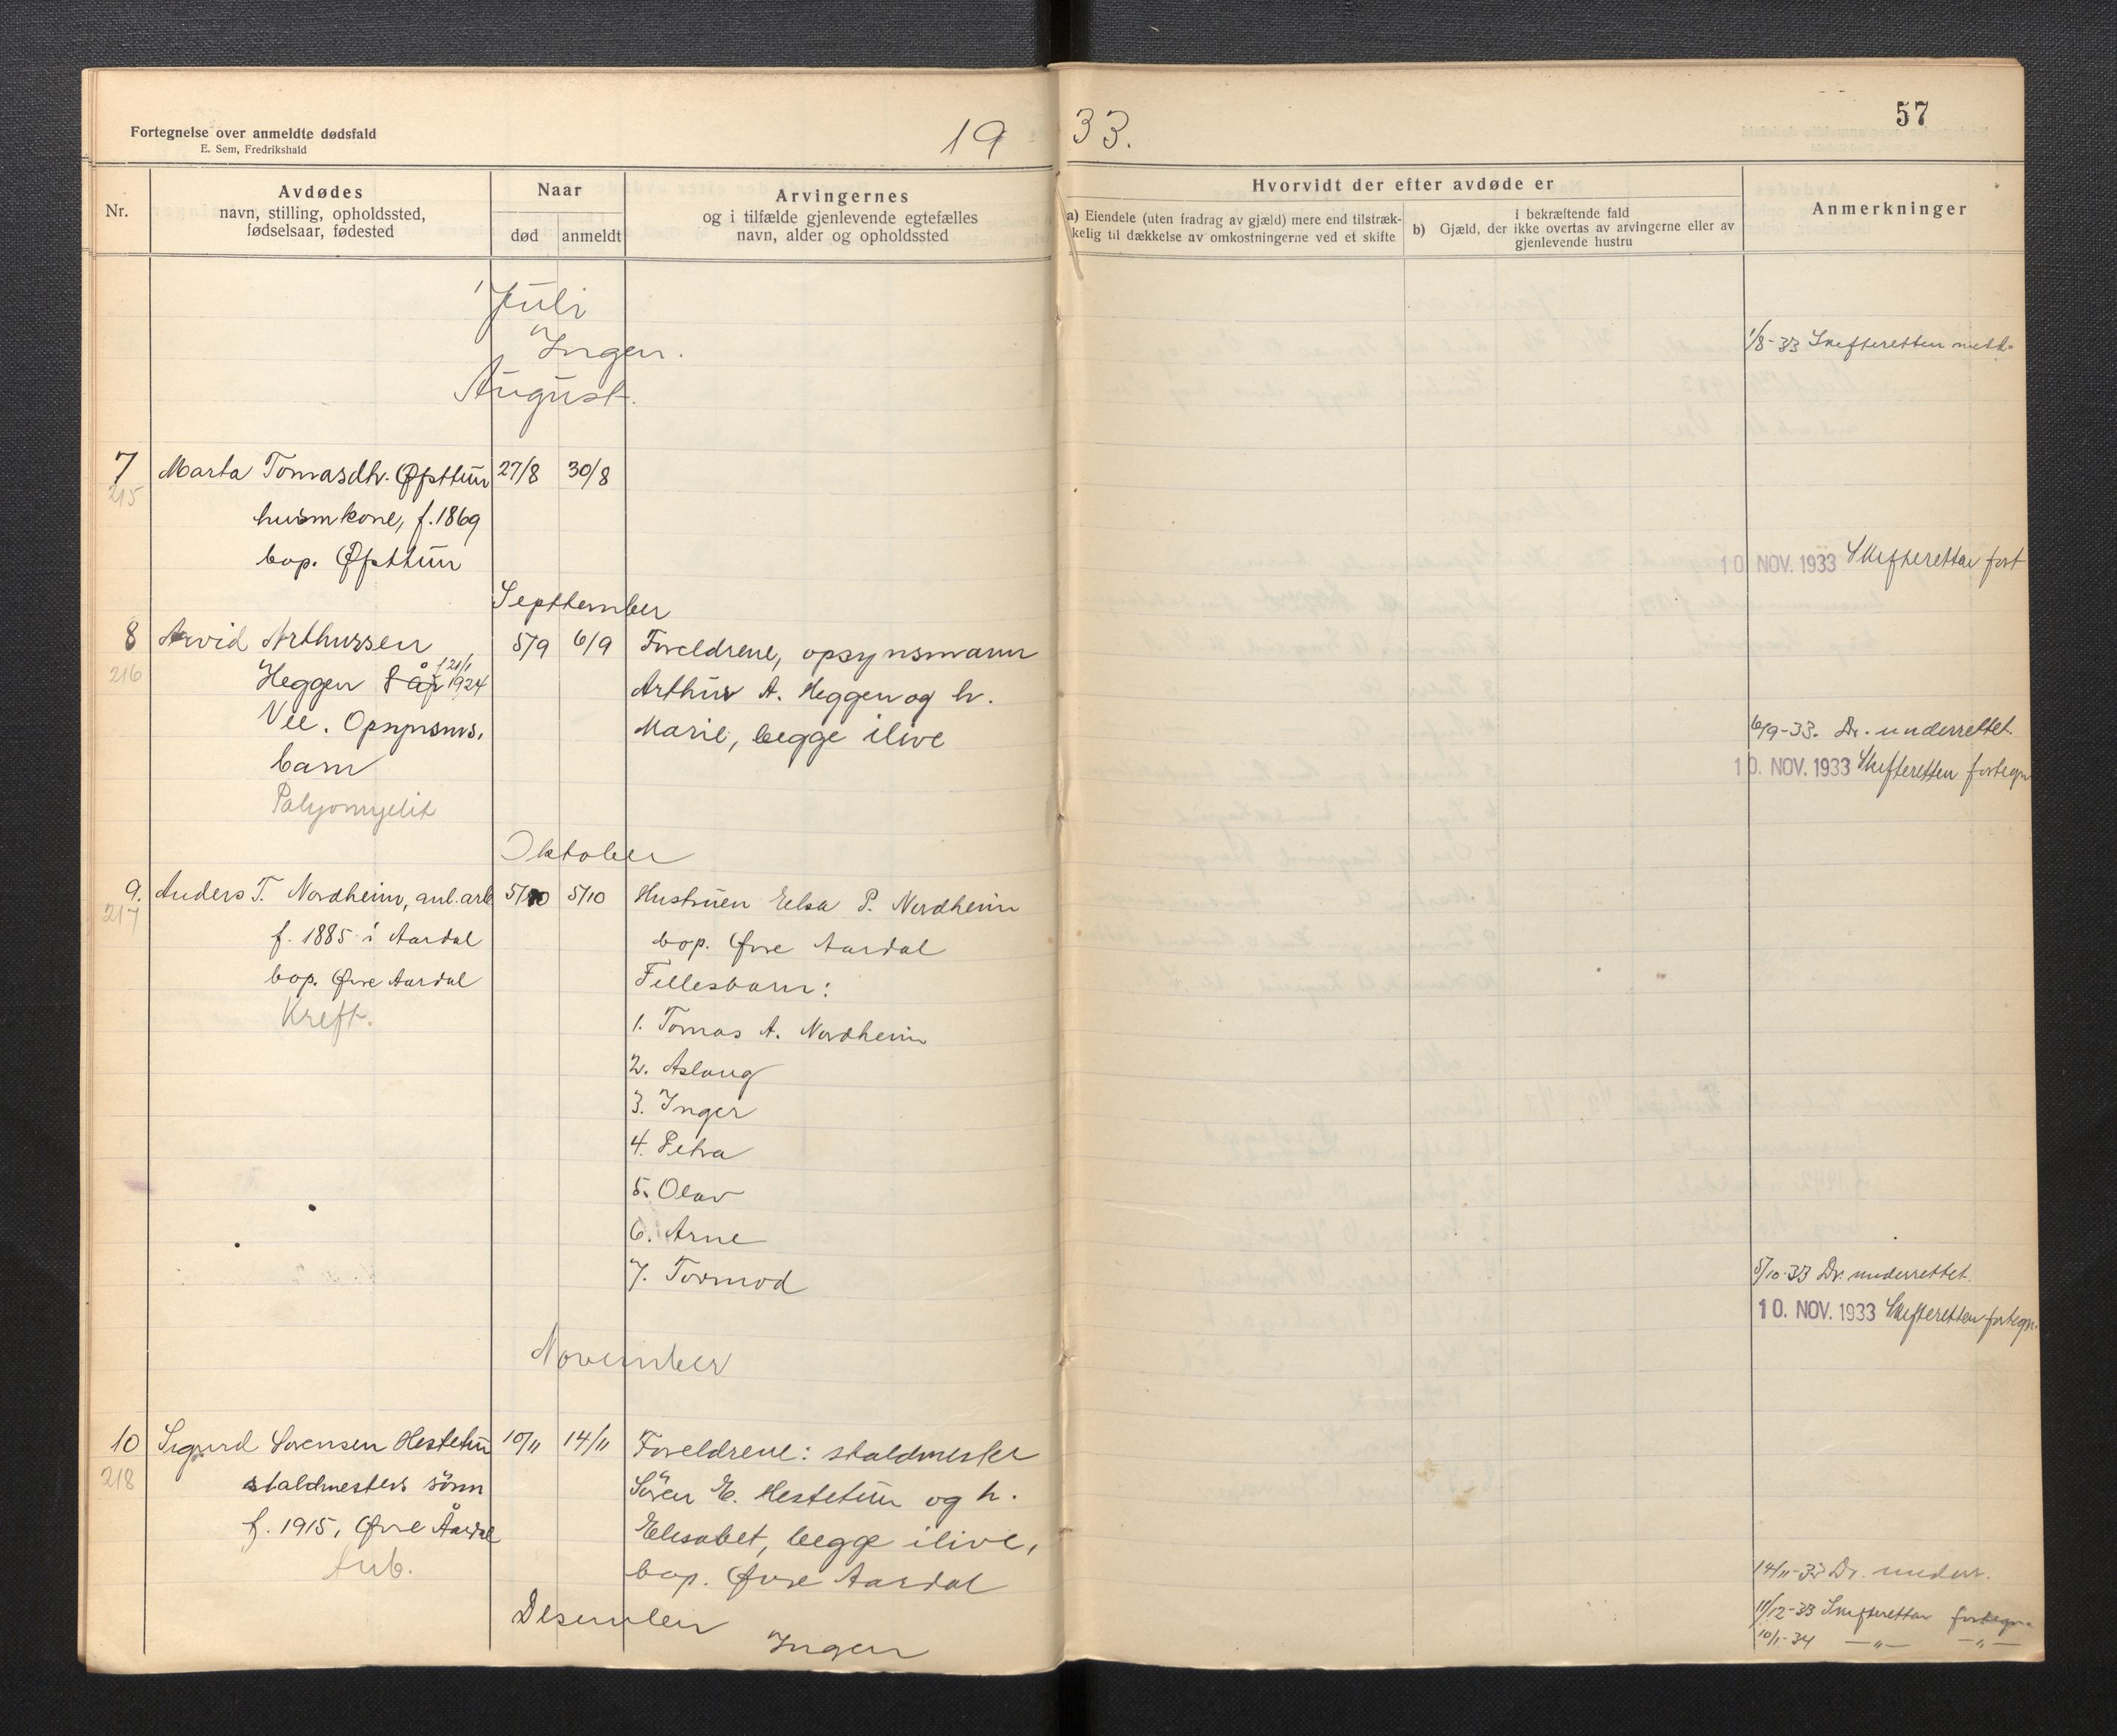 Fortegnelse over anmeldte dødsfald
E. Sem, Fredrikshald
1933.
57
Nr.
Avdødes
navn, stilling, opholdssted,
fødselsaar, fødested
Naar
død
anmeldt
Arvingernes
og i tilfælde gjenlevende egtefælles
navn, alder og opholdssted
Hvorvidt der efter avdøde er
a) Eiendele (uten fradrag av gjæld) mere end tilstræk-
kelig til dækkelse av omkostningerne ved et skifte
i bekræftende fald
b) Gjæld, der ikke overtas av arvingerne eller av
gjenlevende hustru
Anmerkninger
Juli
Ingen.
1/8-33 Skifteretten medd.
August.
7 Marta Tomasdtr. Øfsttun 27/8 30/8
215
husmkone, f. 1869
bop. Øfsttun
10. NOV. 1933 Skifteretten fort
Septtember
8 Arvid Arthurssen 5/9 6/9 Foreldrene, opsynsmann
216
Heggen 8 år f 21/1 1924 Arthur A. Heggen og h.
Vee. Opsynsms. Marie, begge ilive
barn
6/9-33. Dr. underrettet.
10. NOV. 1933 Skifteretten fortegn
Polyomyelit
Oktober
9. Anders T. Nordheim, anl.arb 5/10 5/10 Hustruen Elsa P. Nordheim
217
f. 1885 i Aardal bop. Øvre Aardal
bop. Øvre Aardal Fellesbarn:
Kreft.
1. Tomas A. Nordheim
2. Aslaug
3. Inger
4. Petra
5. Olav
6. Arne
7. Tormod
5/10-33 Dr. underrettet.
10. NOV. 1933 Skifteretten fortegn.
November
10 Sigurd Sørensen Hestetun 10/11 14/11 Foreldrene: staldmester
218
staldmesters sönn Sören E. Hestetun og h.
f. 1915, Øvre Årdal Elisabet, begge ilive,
Tub. bop. Øvre Aardal
14/11-33 Dr. underr.
Desember
Ingen
11/12-33 Skifteretten fortegn.
10/1-34 —"— —"—